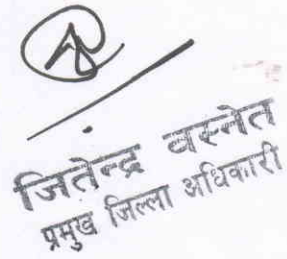 जितेन्द्र वस्नेत
प्रमुख जिल्ला अधिकारी